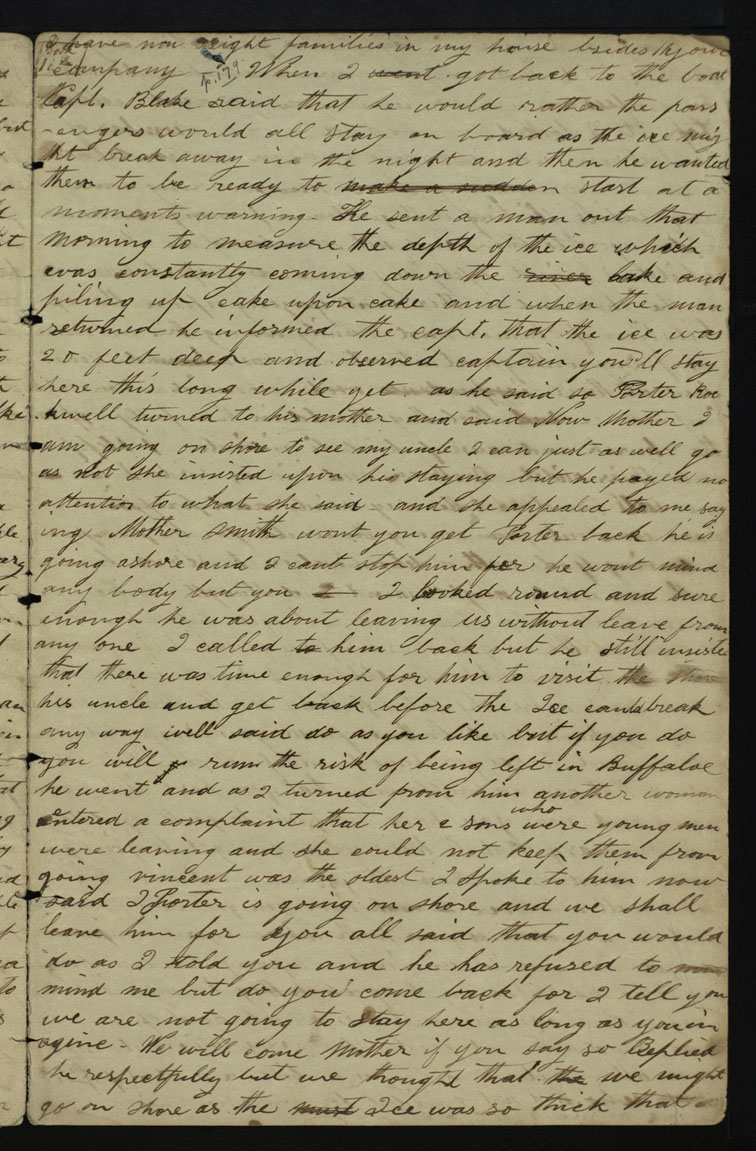 I have now eight families in my house besides thy own
company When I went got back to the boat
p. 179
Capt. Blake said that he would rather the pass
-engers would all stay on board as the ice mig
ht break away in the night and then he wanted
them to be ready to make a sudden start at a
moments warning. He sent a man out that
morning to measure the depth of the ice which
was constantly coming down the river lake and
piling up cake upon cake and when the man
returned he informed the capt. that the ice was
20 feet deep and observed captain you'll stay
here this long while yet. as he said so Porter Roc
kwell turned to his mother and said Now Mother I
am going on shore to see my uncle I can just as well go
as not she insisted upon his staying but he payed no
attention to what she said and she appealed to me say
ing Mother Smith wont you get Porter back he is
going ashore and I cant stop him for he wont mind
any body but you I I looked round and sure
enough he was about leaving us without leave from
any one I called to him back but he still insiste
that there was time enough for him to visit the
his uncle and get back before the Ice could break
any way well said do as you like but if you do
you will run the risk of being left in Buffaloe
he went and as I turned from him another woman
who
entered a complaint that her 2 sons were young men
were leaving and she could not keep them from
going vincent was the oldest I spoke to him now
said I Porter is going on shore and we shall
leave him for you all said that you would
do as I told you and he has refused to
mind me but do you come back for I tell you
we are not going to stay here as long as you im
agine - We will come Mother if you say so Replied
he respectfully but we thought that the we might
go on shore as the must Ice was so thick that